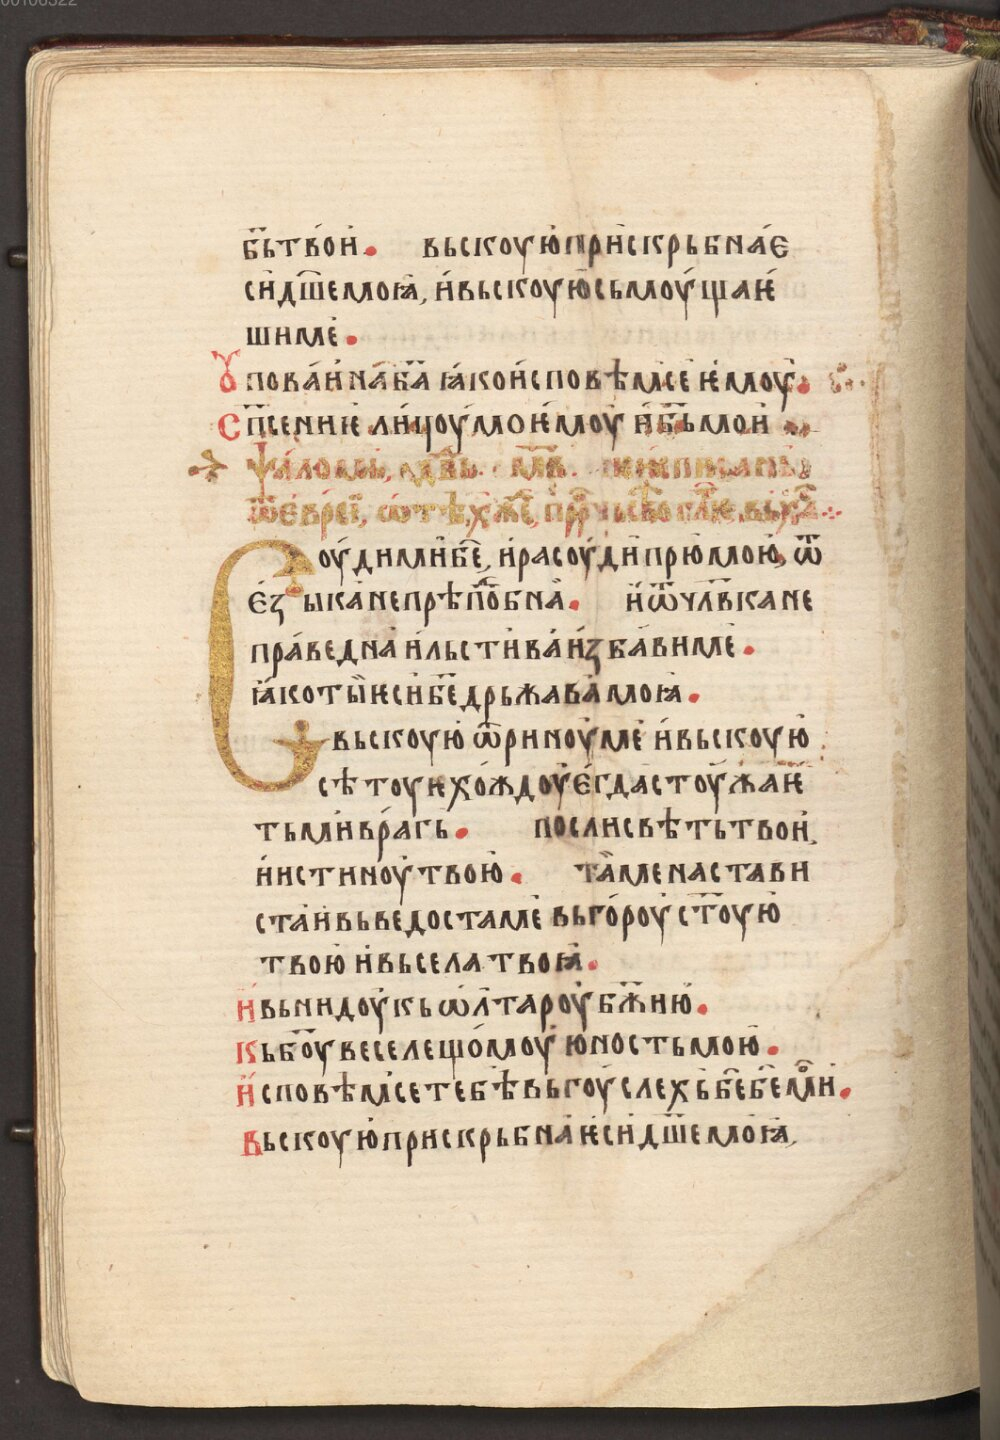 00106322
б҃ь твои. вьскоую прискрьбна є
си дш҃е моꙗ, и вьскоую сьмоущаѥ
ши ме.
Ꙋповаи на б҃а ꙗко исповѣм се ѥмоу.
Сп҃сениѥ лицоу моѥмоу и б҃ь мои
ѱаломь,
ѿ еврѣи,
Соуди ми б҃е, и расоуди прю мою, ѿ
єзыка непрѣпⷣобна. и ѿ чл҃вка не
праведна и льстива избави ме.
ꙗко ты ѥси б҃е дрьжава моꙗ.
вьскоую ѿриноу ме и вьскоую
сѣтоуѥ хождоу єгда стоужаѥ
ть ми врагь. посли свѣть твои,
и истиноу твою. та ме настави
ста и вьведоста ме вь гороу ст҃оую
твою и вь села твоꙗ.
И вьнидоу кь ѡлтароу б҃жию.
Кь б҃оу веселещомоу юность мою.
Исповѣм се тебѣ вь гоуслехь б҃е б҃е мои.
Вьскоую прискрьбна ѥси дш҃е моꙗ,